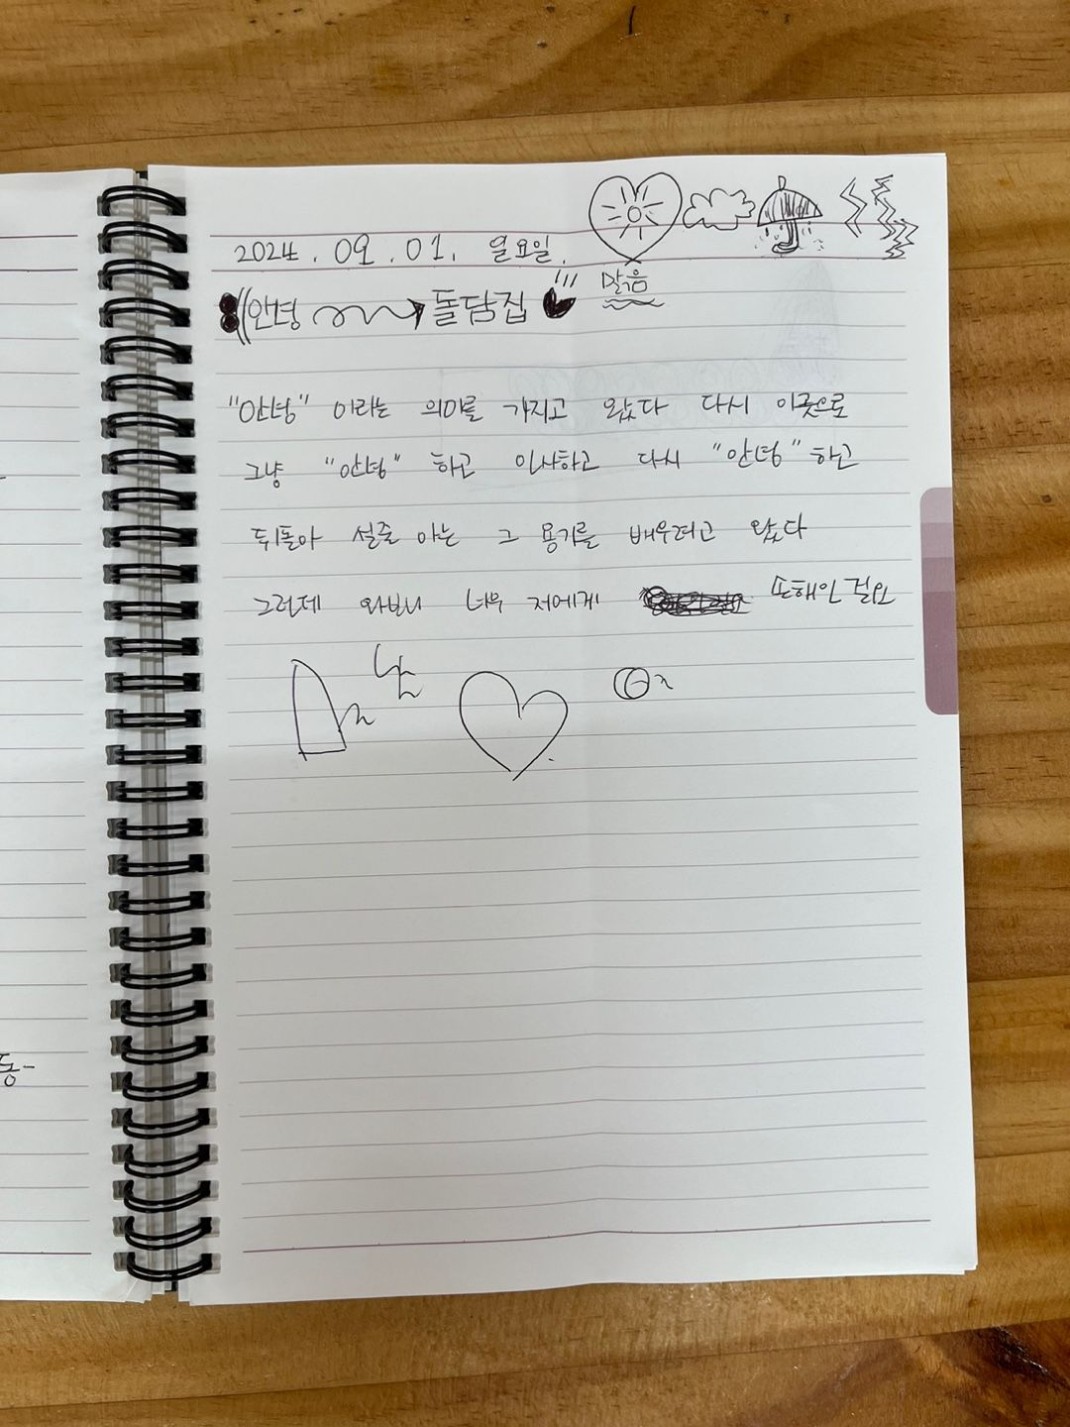 2024. 09. 01. 일요일.
맑음
안녕 돌담집
"안녕" 이라는 의미를 가지고 왔다 다시 이곳으로
그냥 "안녕" 하고 인사하고 다시 "안녕" 하고
뒤돌아 설줄 아는 그 용기를 배우려고 왔다
그런데 와보니 너무 저에게 손해인걸요
동-